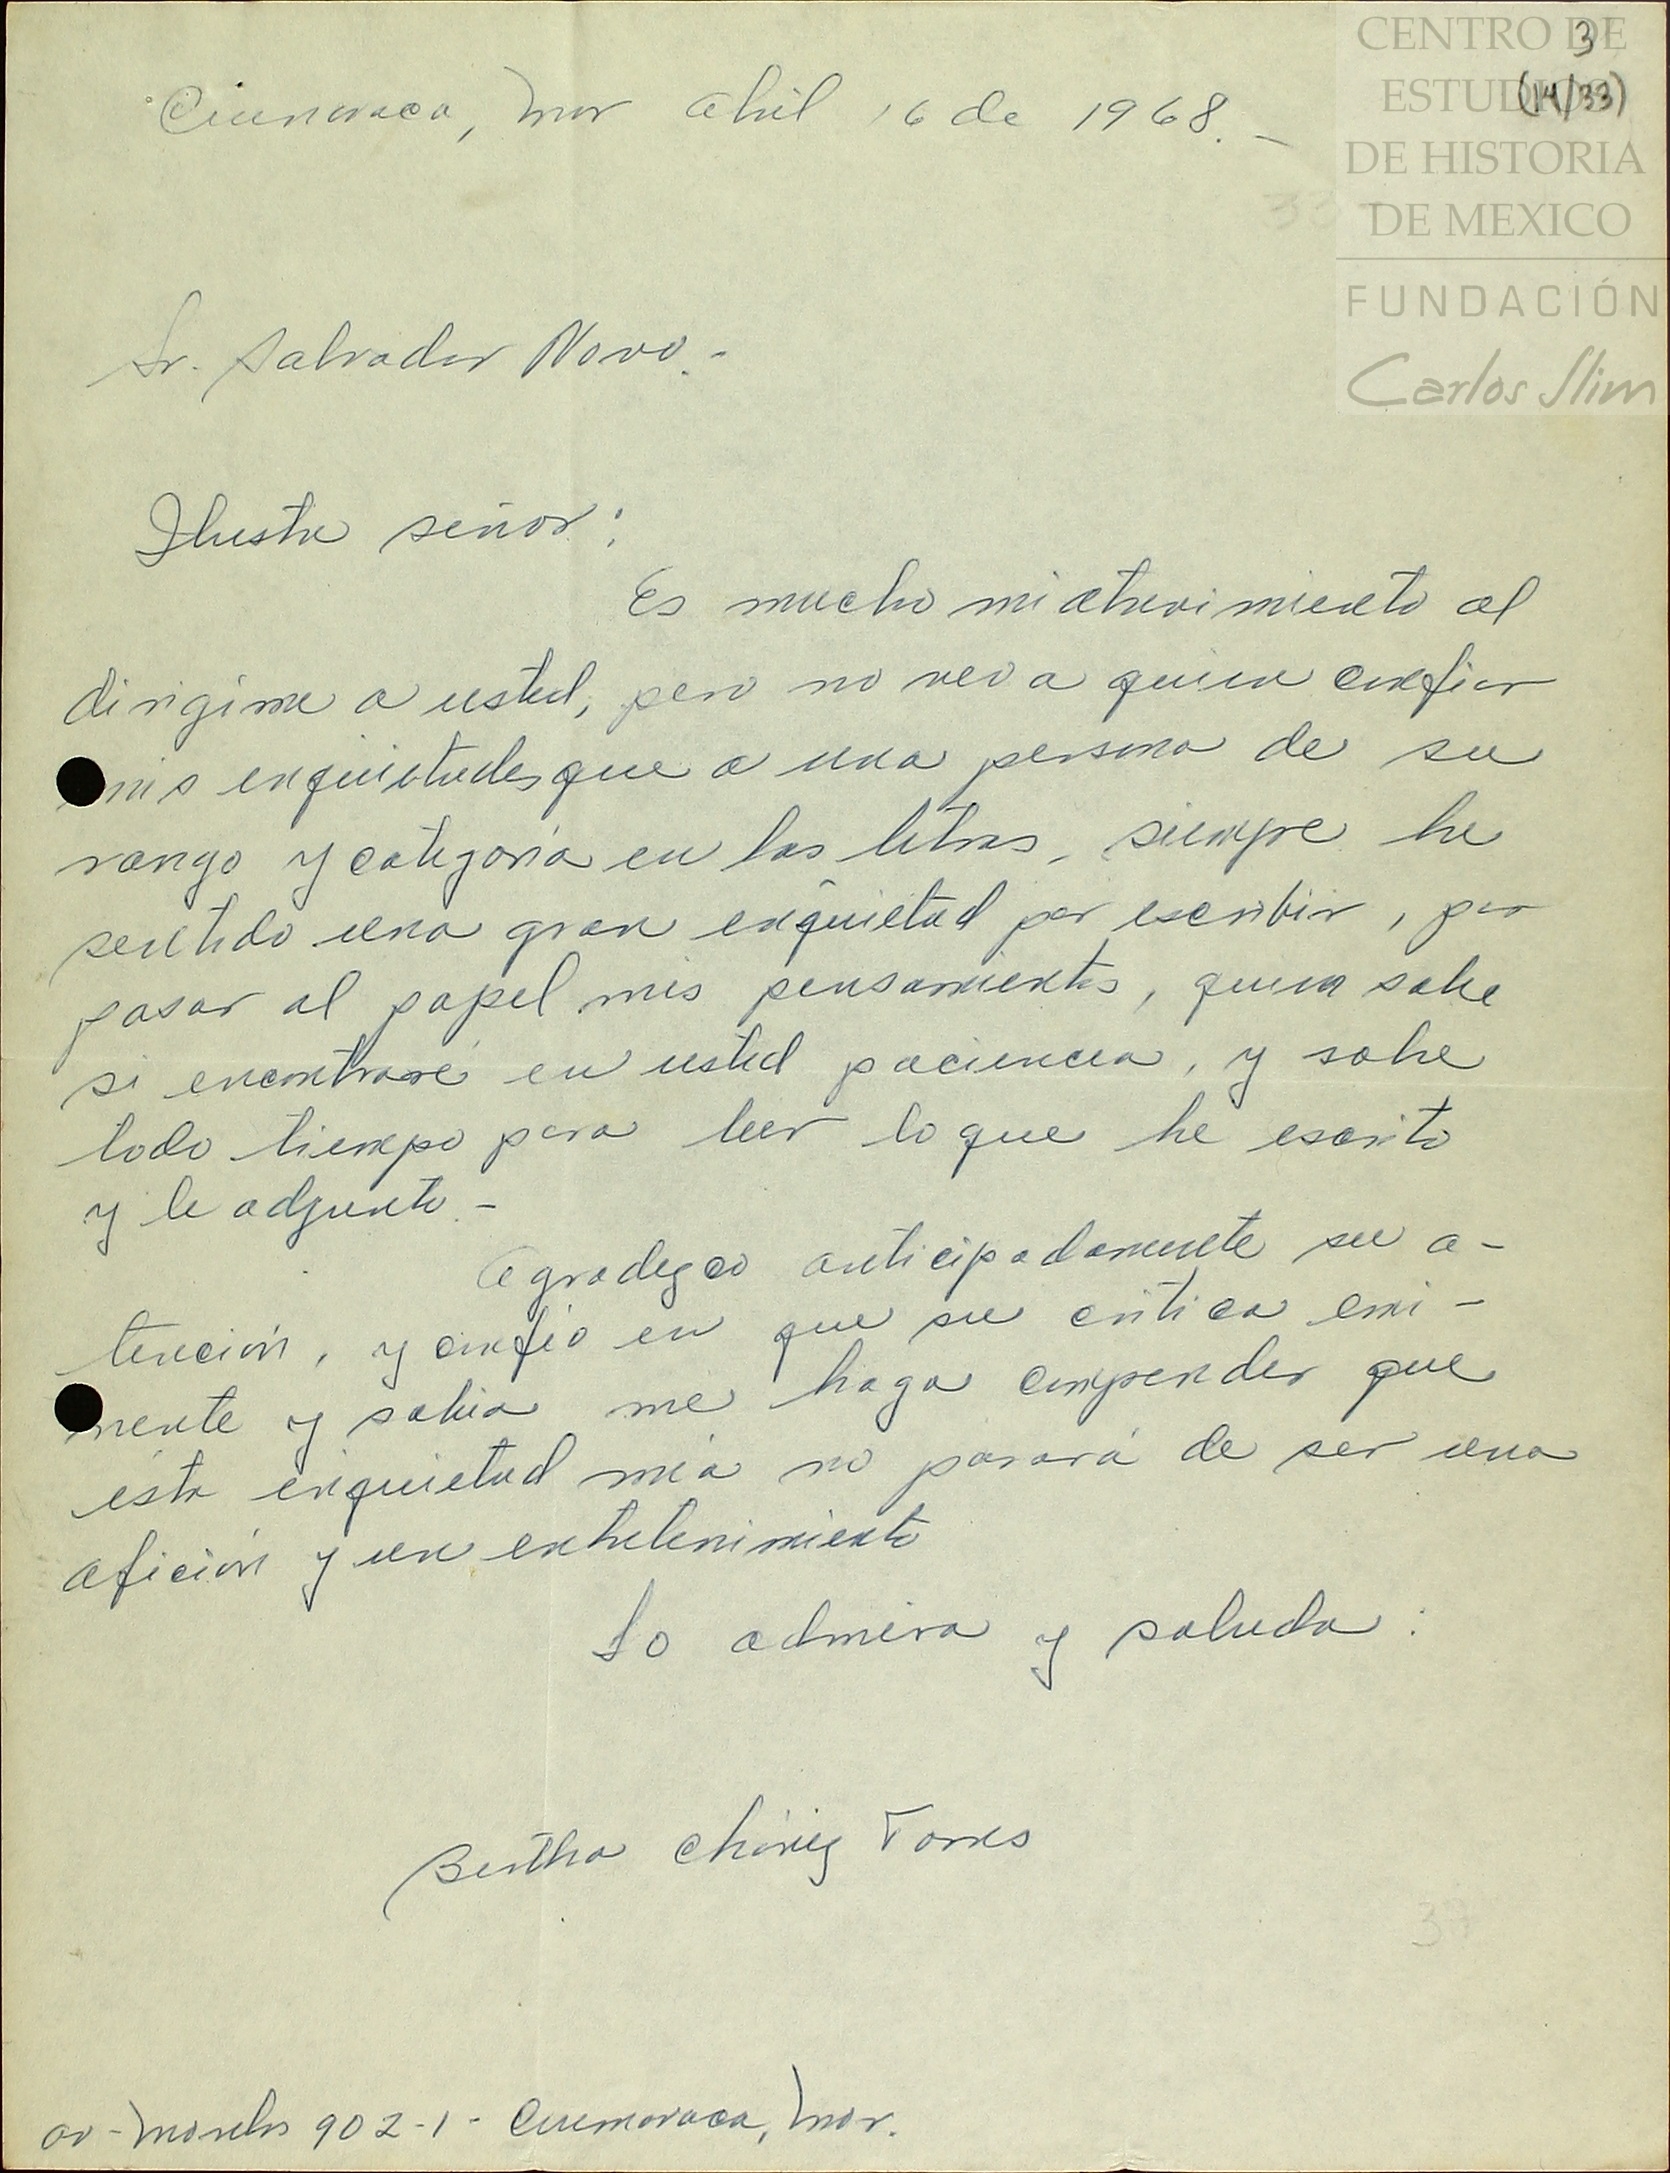 CENTRO DE
ESTUDIOS
DE HISTORIA
DE MEXICO
FUNDACIÓN
Carlos Slim
3
(14/33)
Cuernavaca, Mor Abril 16 de 1968.-
Sr. Salvador Novo.-
Ilustre señor:
Es mucho mi atrevimiento al
dirigirme a usted, pero no veo a quien confiar
mis enquietudes que a una persona de su
rango y categoría en las letras, siempre he
sentido una gran enquietud por escribir, por
pasar al papel mis pensamientos, quien sabe
si encontraré en usted paciencia, y sobre
todo tiempo para leer lo que he escrito
y le adjunto.-
Agradezco anticipadamente su a-
tención, y confío en que su crítica emi-
nente y sabia me haga comprender que
ésta enquietud mía no pasará de ser una
afición y un entretenimiento
Lo admira y saluda:
Bertha Cháirez Torres
av-Morelos 902-1- Cuernavaca, Mor.